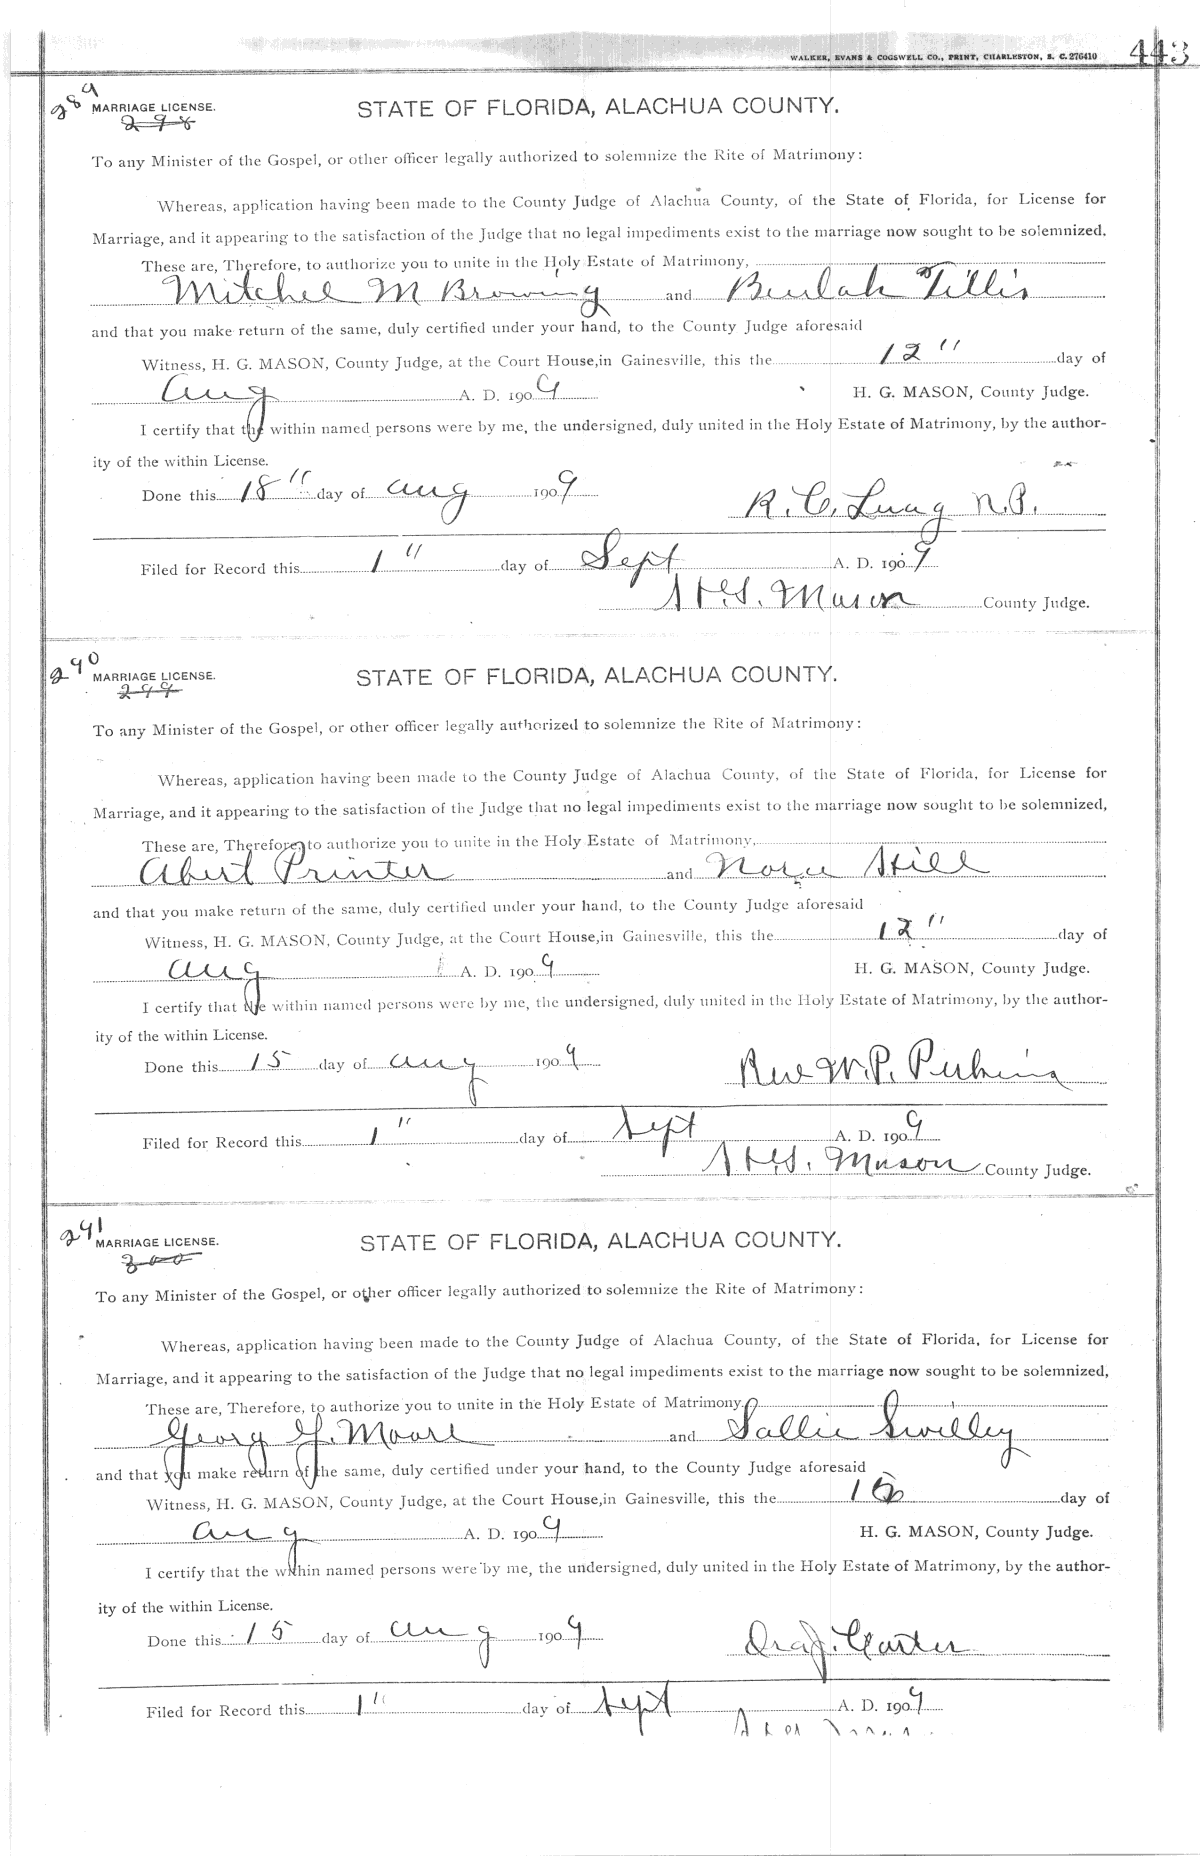 WALKER, EVANS & COGSWELL CO., PRINT, CHARLESTON, S. C. 276410 443
289 MARRIAGE LICENSE. STATE OF FLORIDA, ALACHUA COUNTY.
298
To any Minister of the Gospel, or other officer legally authorized to solemnize the Rite of Matrimony:
Whereas, application having been made to the County Judge of Alachua County, of the State of Florida, for License for
Marriage, and it appearing to the satisfaction of the Judge that no legal impediments exist to the marriage now sought to be solemnized.
These are, Therefore, to authorize you to unite in the Holy Estate of Matrimony,
Mitchel M Browing and Beulah Tillis
and that you make return of the same, duly certified under your hand, to the County Judge aforesaid
Witness, H. G. MASON, County Judge, at the Court House, in Gainesville, this the 12" day of
Aug A. D. 1909 H. G. MASON, County Judge.
I certify that the within named persons were by me, the undersigned, duly united in the Holy Estate of Matrimony, by the author-
ity of the within License.
Done this 18" day of Aug 1909
R. C. Luag N.P.
Filed for Record this 1" day of Sept A. D. 1909
H.G. Mason County Judge.
290 MARRIAGE LICENSE. STATE OF FLORIDA, ALACHUA COUNTY.
299
To any Minister of the Gospel, or other officer legally authorized to solemnize the Rite of Matrimony:
Whereas, application having been made to the County Judge of Alachua County, of the State of Florida, for License for
Marriage, and it appearing to the satisfaction of the Judge that no legal impediments exist to the marriage now sought to be solemnized,
These are, Therefore, to authorize you to unite in the Holy Estate of Matrimony,
Abert Printer and Nora Hill
and that you make return of the same, duly certified under your hand, to the County Judge aforesaid
Witness, H. G. MASON, County Judge, at the Court House, in Gainesville, this the 12" day of
Aug A. D. 1909 H. G. MASON, County Judge.
I certify that the within named persons were by me, the undersigned, duly united in the Holy Estate of Matrimony, by the author-
ity of the within License.
Done this 15 day of Aug 1909 Rev W. P. Perkins
Filed for Record this 1" day of Sept A. D. 1909
H.G. Mason County Judge.
291 MARRIAGE LICENSE. STATE OF FLORIDA, ALACHUA COUNTY.
300
To any Minister of the Gospel, or other officer legally authorized to solemnize the Rite of Matrimony:
Whereas, application having been made to the County Judge of Alachua County, of the State of Florida, for License for
Marriage, and it appearing to the satisfaction of the Judge that no legal impediments exist to the marriage now sought to be solemnized,
These are, Therefore, to authorize you to unite in the Holy Estate of Matrimony,
Georg Y. Moore and Sallie Swilley
and that you make return of the same, duly certified under your hand, to the County Judge aforesaid
Witness, H. G. MASON, County Judge, at the Court House, in Gainesville, this the day of
Aug A. D. 1909 H. G. MASON, County Judge.
I certify that the within named persons were by me, the undersigned, duly united in the Holy Estate of Matrimony, by the author-
ity of the within License.
Done this 15 day of Aug 1909 Ora J. Carter
Filed for Record this 1" day of Sept A. D. 1909